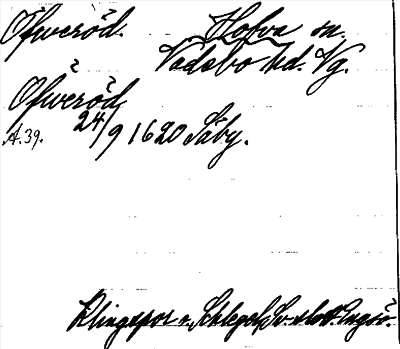 Öfweröd. Hofva sn.
Vadsbo hd. Vg.
Öfweröd
A.39. 24/9 1620 Säby.
Klingspor o. Schlegel, Sv. slott. Engsö.